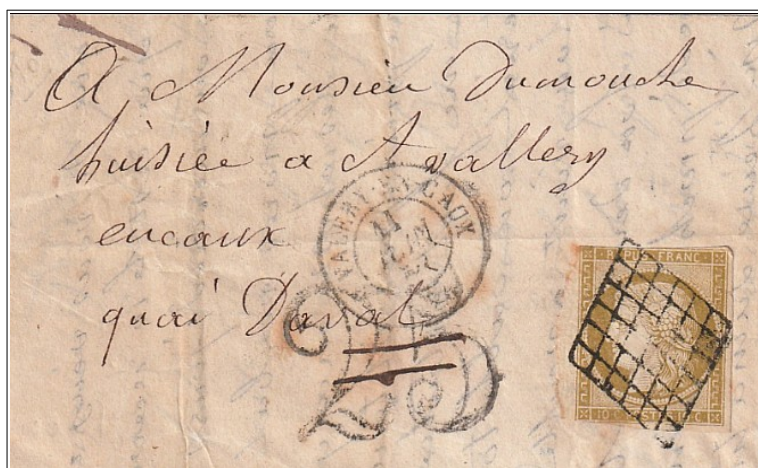 A Monsieur Dumouche
huisiée a St vallery
encaux
quai Daval
VALERY-EN-CAUX
11
JUIN
25
REPUB. FRANC
10 C POSTES 10 C